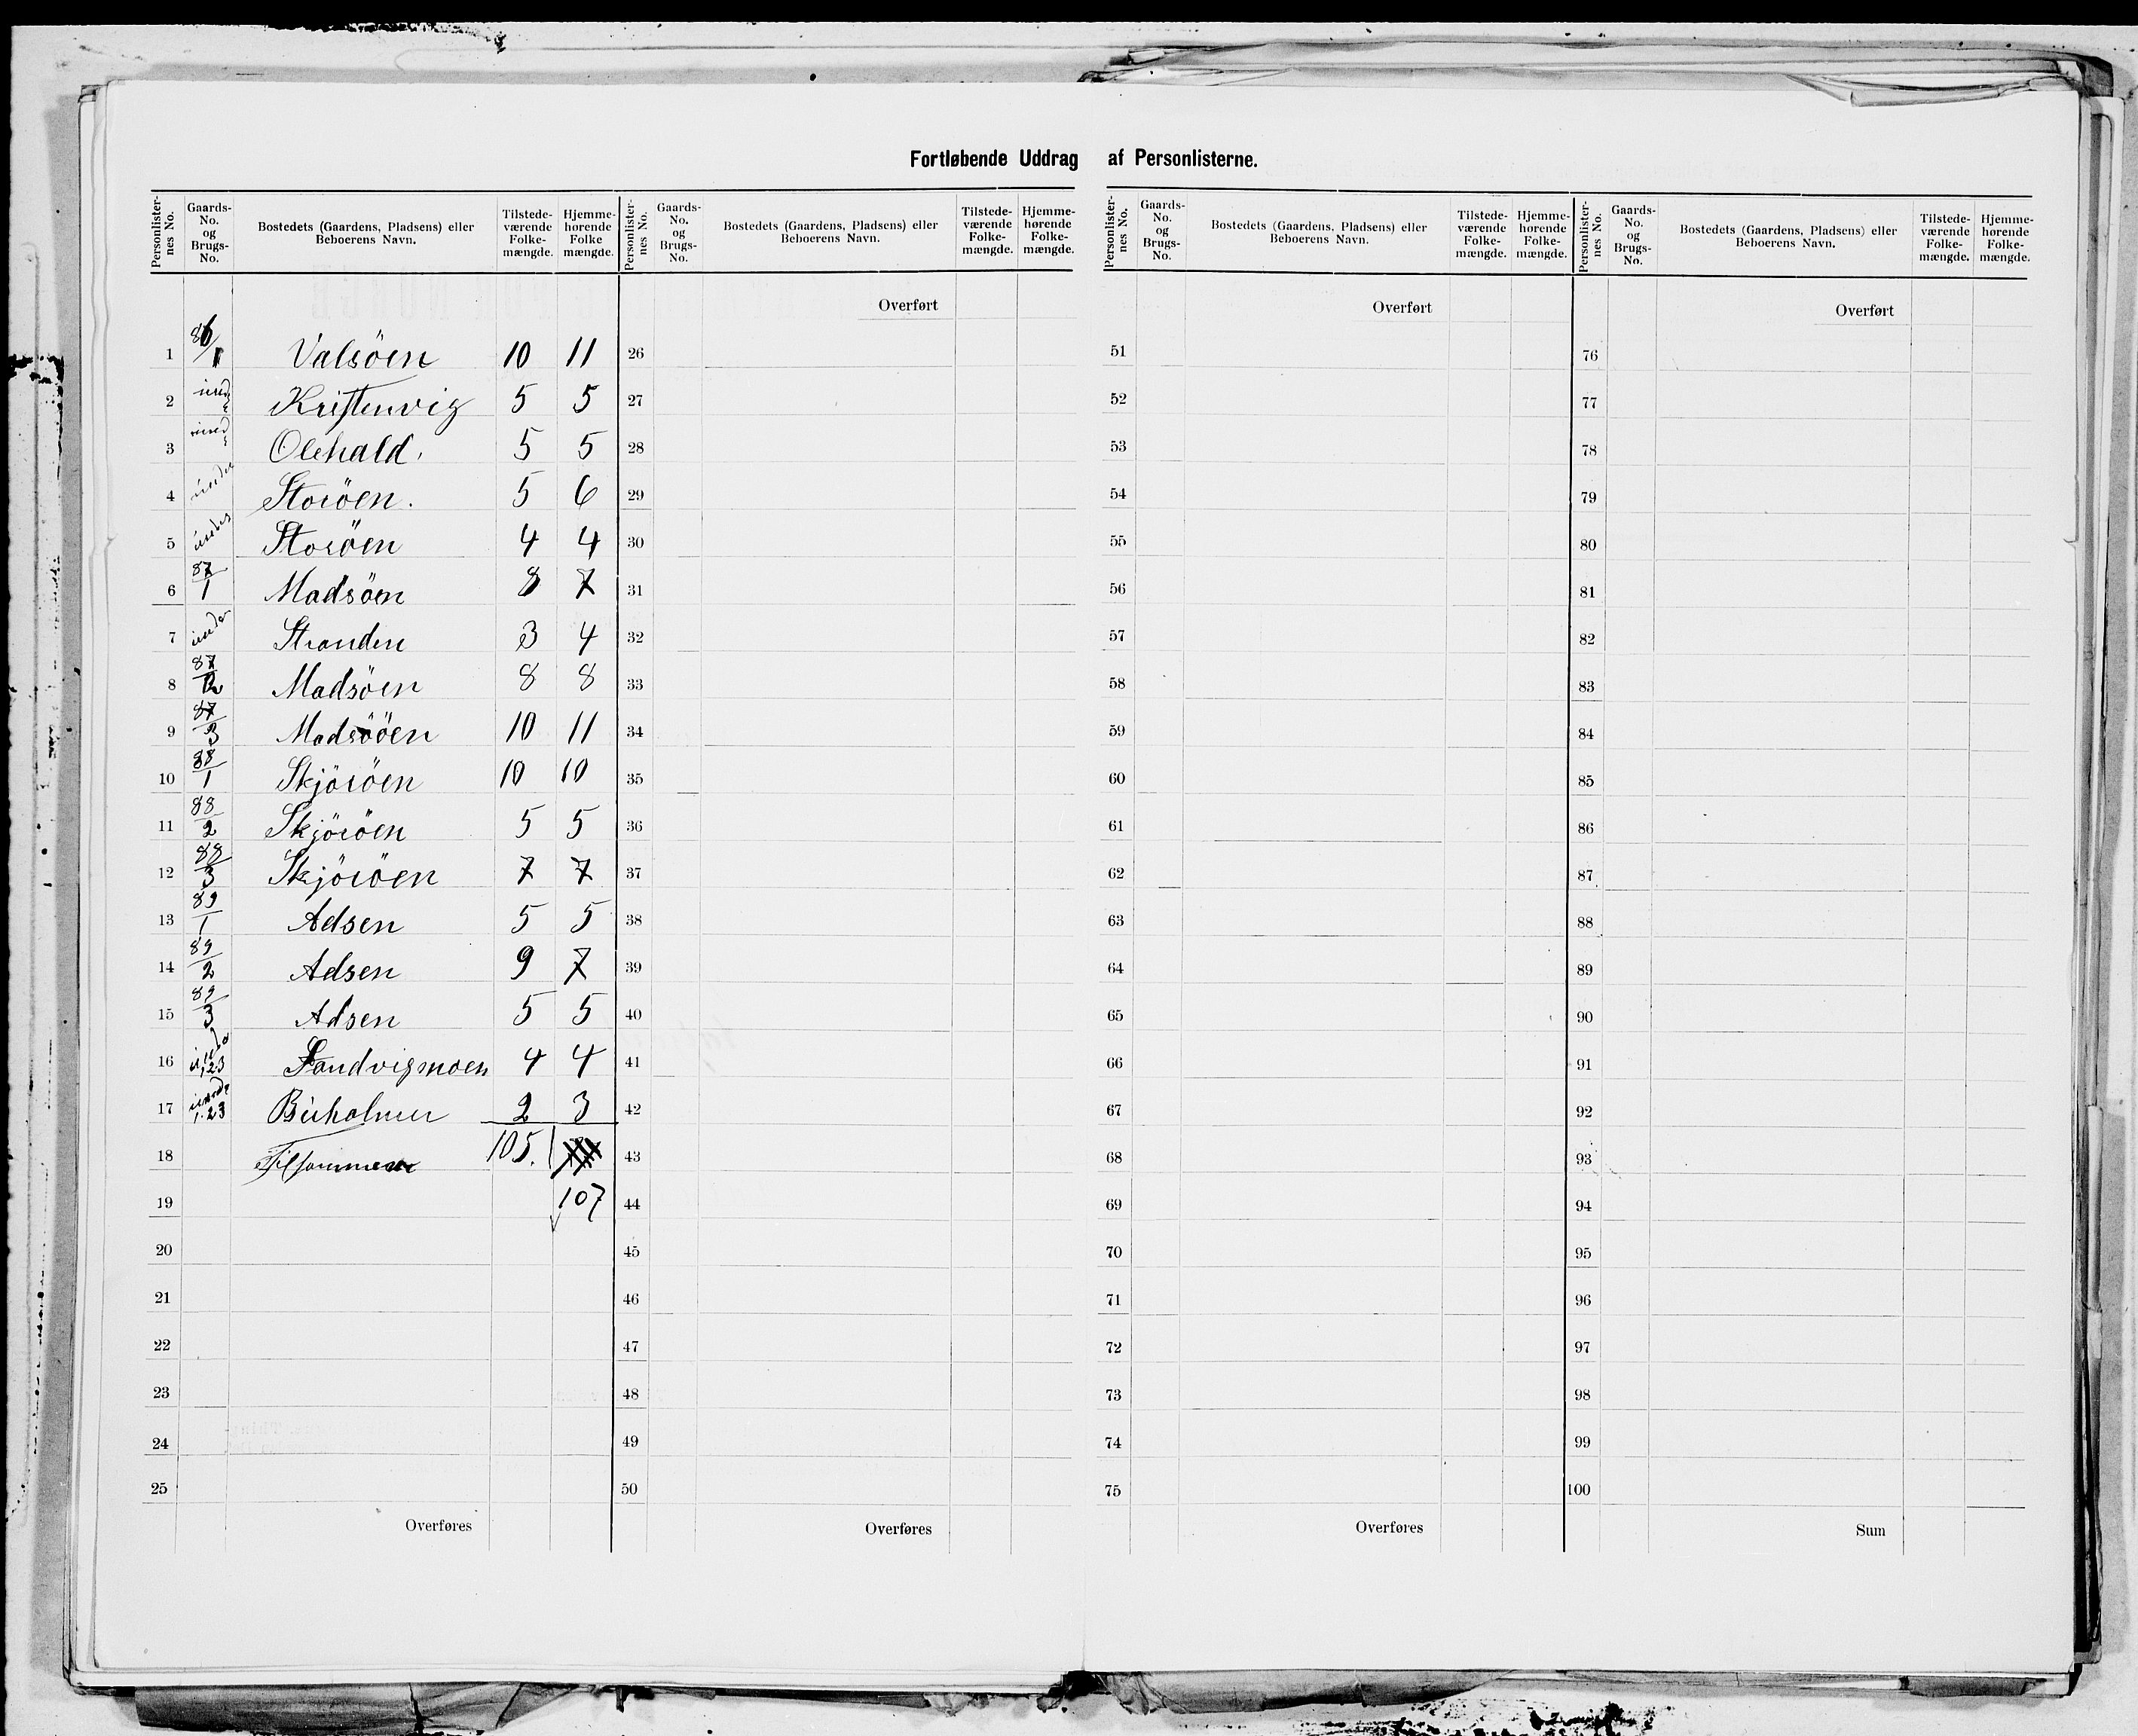 Fortløbende Uddrag af Personlisterne.
Personlisternes No. Gaards-No. og Brugs-No. Bostedets (Gaardens, Pladsens) eller Beboerens Navn. Tilstedeværende Folkemængde. Hjemmehørende Folke mængde.
1 86/1 Valsöen 10 11
2 Kristenvig 5 5
3 Olehald. 5 5
4 under Storöen. 5 6
5 under Storöen 4 4
6 87/1 Madsöen 8 7
7 under Stranden 3 4
8 87/2 Madsöen 8 8
9 87/3 Madsöen 10 11
10 88/1 Skjöröen 10 10
11 88/2 Skjöröen 5 5
12 88/3 Skjöröen 7 7
13 89/1 Adsen 5 5
14 89/2 Adsen 9 7
15 89/3 Adsen 5 5
16 1.2.3 Sandvigmoen 4 4
17 1.2.3 2 3
18 Tilsammen 105.
19 107
20
21
22
23
24
25
Overføres
Personlisternes No. Gaards-No. og Brugs-No. Bostedets (Gaardens, Pladsens) eller Beboerens Navn. Tilstedeværende Folkemængde. Hjemmehørende Folkemængde.
Overført
26
27
28
29
30
31
32
33
34
35
36
37
38
39
40
41
42
43
44
45
46
47
48
49
50
Overføres
Personlisternes No. Gaards-No. og Brugs-No. Bostedets (Gaardens, Pladsens) eller Beboerens Navn. Tilstedeværende Folkemængde. Hjemmehørende Folkemængde.
Overført
51
52
53
54
55
56
57
58
59
60
61
62
63
64
65
66
67
68
69
70
71
72
73
74
75
Overføres
Personlisternes No. Gaards-No. og Brugs-No. Bostedets (Gaardens, Pladsens) eller Beboerens Navn. Tilstedeværende Folkemængde. Hjemmehørende Folkemængde.
Overført
76
77
78
79
80
81
82
83
84
85
86
87
88
89
90
91
92
93
94
95
96
97
98
99
100
Sum